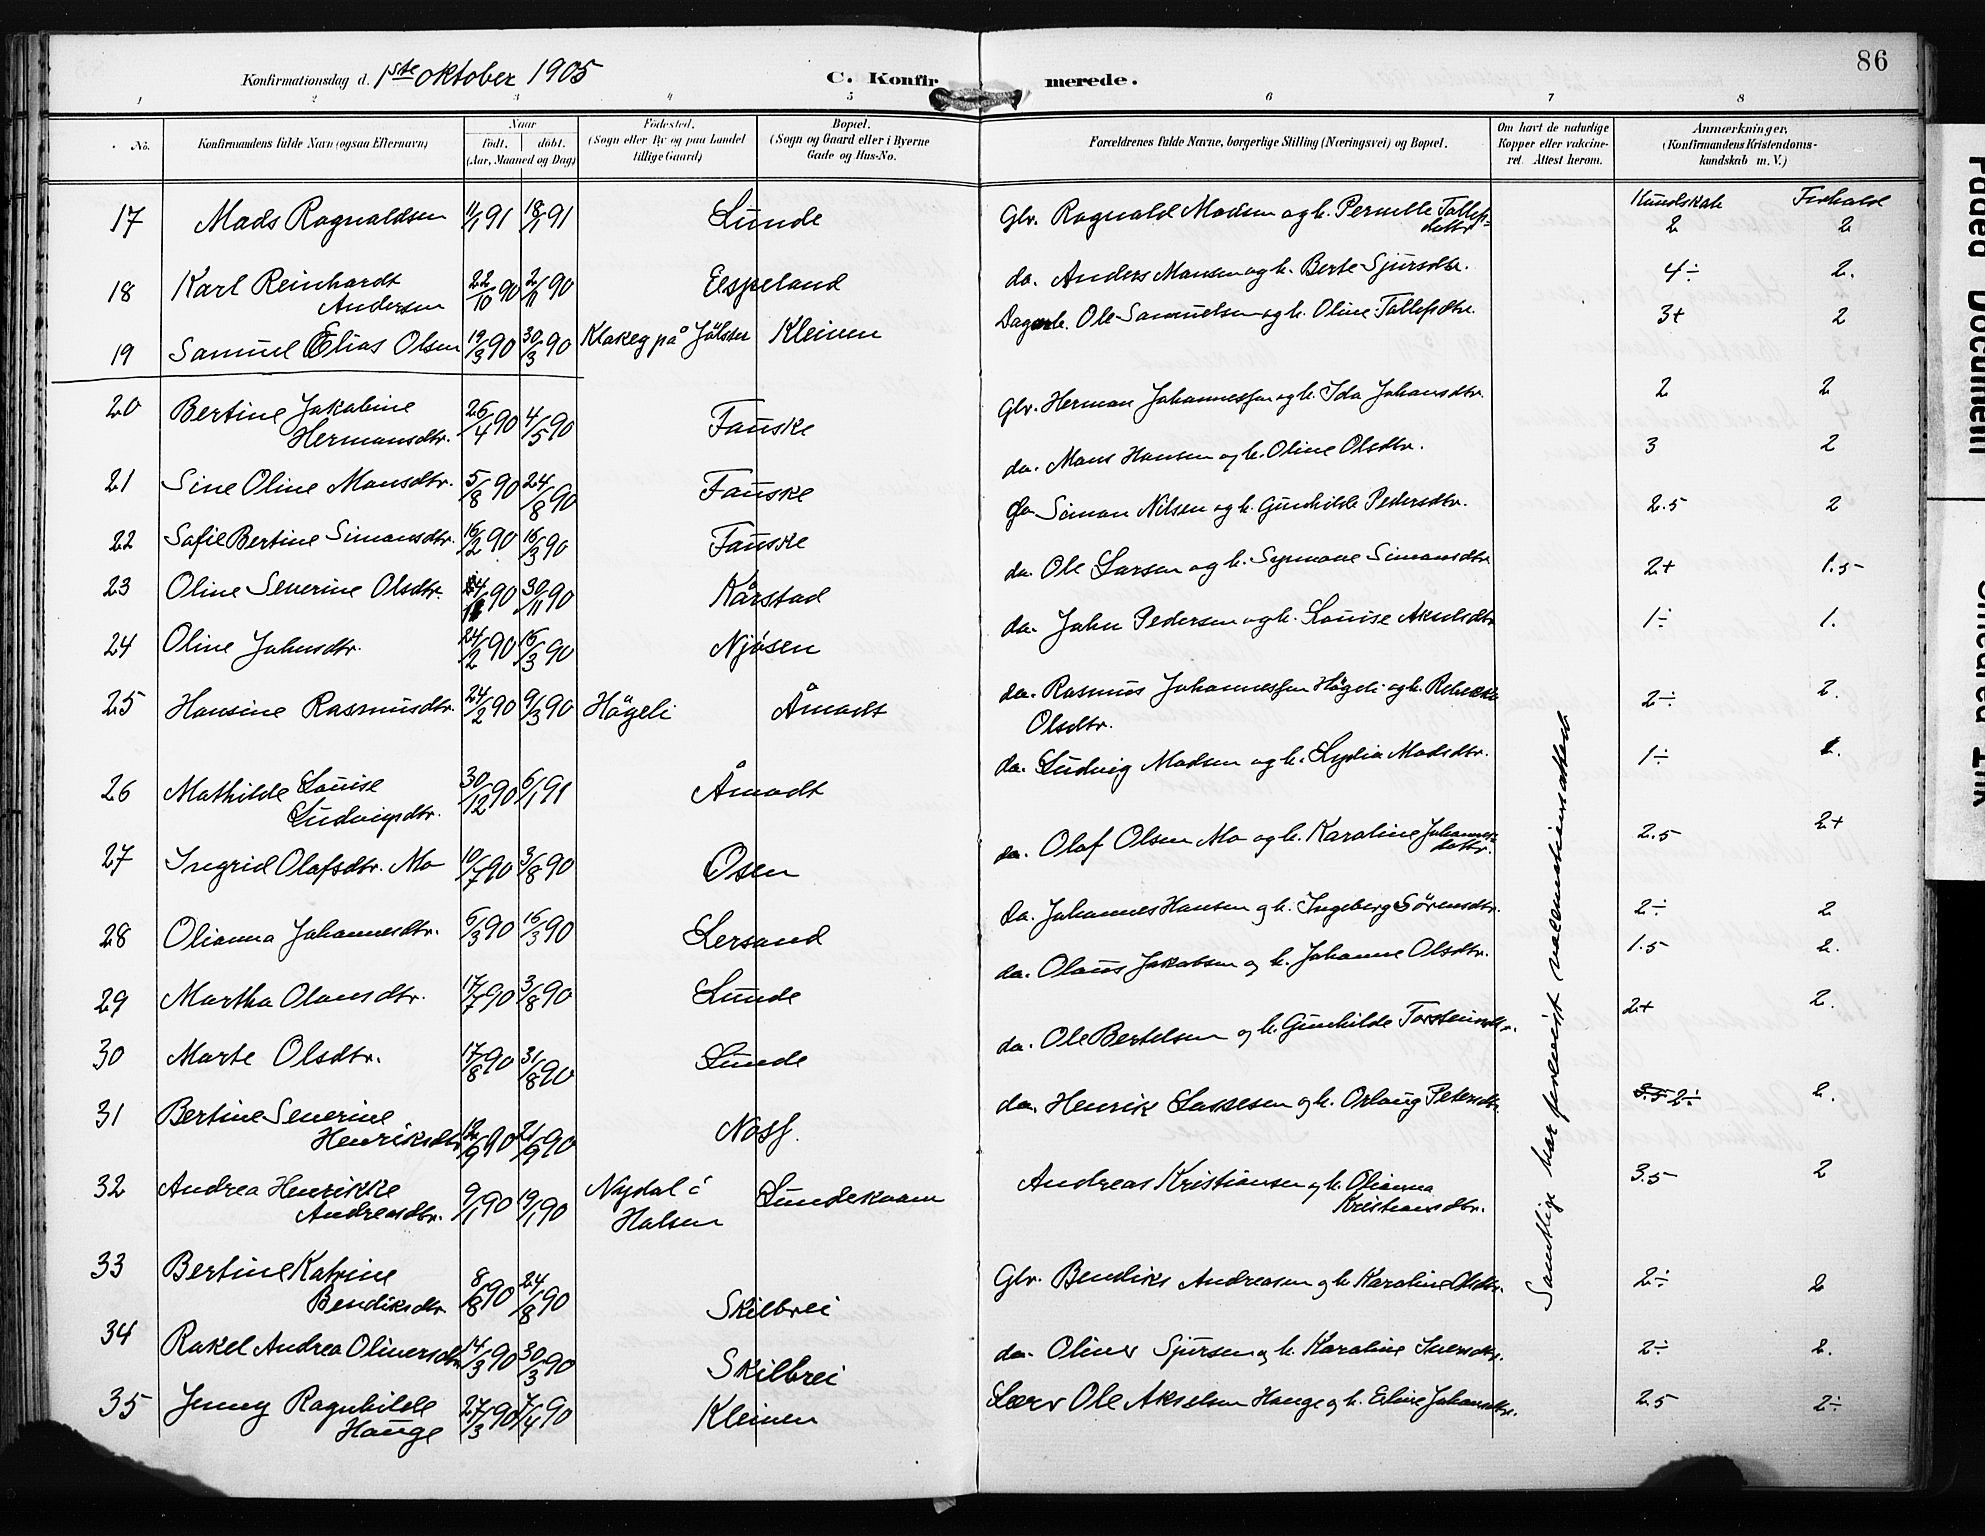 86
Konfirmationsdag d. 1ste oktober 1905 C. Konfirmerede.
1 2 3 4 5 6 7 8
No. Konfirmandens fulde Navn (ogsaa Efternavn) Naar født. døbt. (Aar, Maaned og Dag) Fødested. (Sogn eller By og paa Landet tillige Gaard) Bopæl. (Sogn og Gaard eller i Byerne Gade og Hus-No. Forældrenes fulde Navne, borgerlige Stilling (Næringsvei) og Bopæl. Om havt de naturlige Kopper eller vakcineret. Attest herom. Anmærkninger, (Konfirmandens Kristendomskundskab m. V.)
Kundskab Forhold
17 Mads Ragnaldsen 11/1 91 18/1 91 Lunde Gbr. Ragnald Madsen og h. Pernille Tollefsdottr 2 2
18 Karl Reinhardt Andersen 22/10 90 2/11 90 Espeland do. Anders Monsen og h. Berte Sjursdtr. 4÷ 2.
19 Samuel Elias Olsen 19/3 90 30/3 90 Klakeg på Jölster Kleiven Dagarb. Ole Samuelsen og h. Oline Tollefsdtr. 3+ 2
20 Bertine Jakobine Hermansdtr. 26/4 90 4/5 90 Fauske Gbr. Herman Johannessen og h. Ida Johansdtr. 2 2
21 Sine Oline Monsdtr. 5/8 90 24/8 90 Fauske do. Mons Hansen og h. Oline Olsdtr. 3 2
22 Sofie Bertine Simonsdtr. 16/2 90 16/3 90 Fauske do Simon Nilsen og h. Gunhilde Pedersdtr. 2.5 2
23 Oline Severine Olsdtr. 90 30/11 90 Kårstad do. Ole Larsen og h. Synnove Simonsdtr 2+ 1.5
24 Oline Johnsdtr. 24/2 90 16/3 90 Njøsen do. John Pedersen og h. Louise Akselsdtr 1÷ 1.
25 Hansine Rasmusdtr. 24/2 90 9/3 90 Högeli Åmodt do. Rasmus Johannessen Högeli og h. Rebekka Olsdtr. 2÷ 2.
26 Mathilde Louise Ludvigsdtr. 30/12 90 6/1 91 Åmodt do. Ludvig Madsen og h. Lydia Madsdtr. 1÷
27 Ingrid Olafsdtr. Mo 10/7 90 3/8 90 Osen do. Olaf Olsen Mo og h. Karoline Johannesdottr. 2.5 2+
28 Olianna Johannesdtr. 6/3 90 16/3 90 Lersand do. Johannes Hansen og h. Ingeborg Sörensdtr. 2÷ 2
29 Martha Olausdtr. 17/7 90 3/8 90 Lunde do. Olaus Jakobsen og h. Johanne Olsdtr. 1.5 2.
30 Marte Olsdtr. 17/8 90 31/8 90 Lunde do. Ole Bertelsen og h. Gunhilde Torsteinsdtr. 2+ 2.
31 Bertine Severine Henriksdtr 90 21/9 90 Noss. do. Henrik Lassesen og h. Orlaug Petersdtr 3.5 2÷ 2.
32 Andrea Henrikke Andreasdtr. 9/1 90 19/1 90 Nydal i Holsen Lundekvam Andreas Kristiansen og h. Olianna Kristiansdtr. 3.5 2
33 Bertine Katrine Bendiksdtr. 8/8 90 24/8 90 Skilbrei Gbr. Bendiks Andreasen og h. Karoline Olsdtr. 2÷ 2
34 Rakel Andrea Oliversdtr 14/3 90 30/3 90 Skilbrei do. Oliver Sjursen og h. Karoline Iversdtr. 2÷ 2.
35 Jenny Ragnhilde Hauge 27/3 90 7/4 90 Kleiven Lærer Ole Akselsen Hauge og h. Eline Johansdtr. 2.5 2÷
Samtlige har forevist vaccinationsattest
Faded Document
Smeared Ink